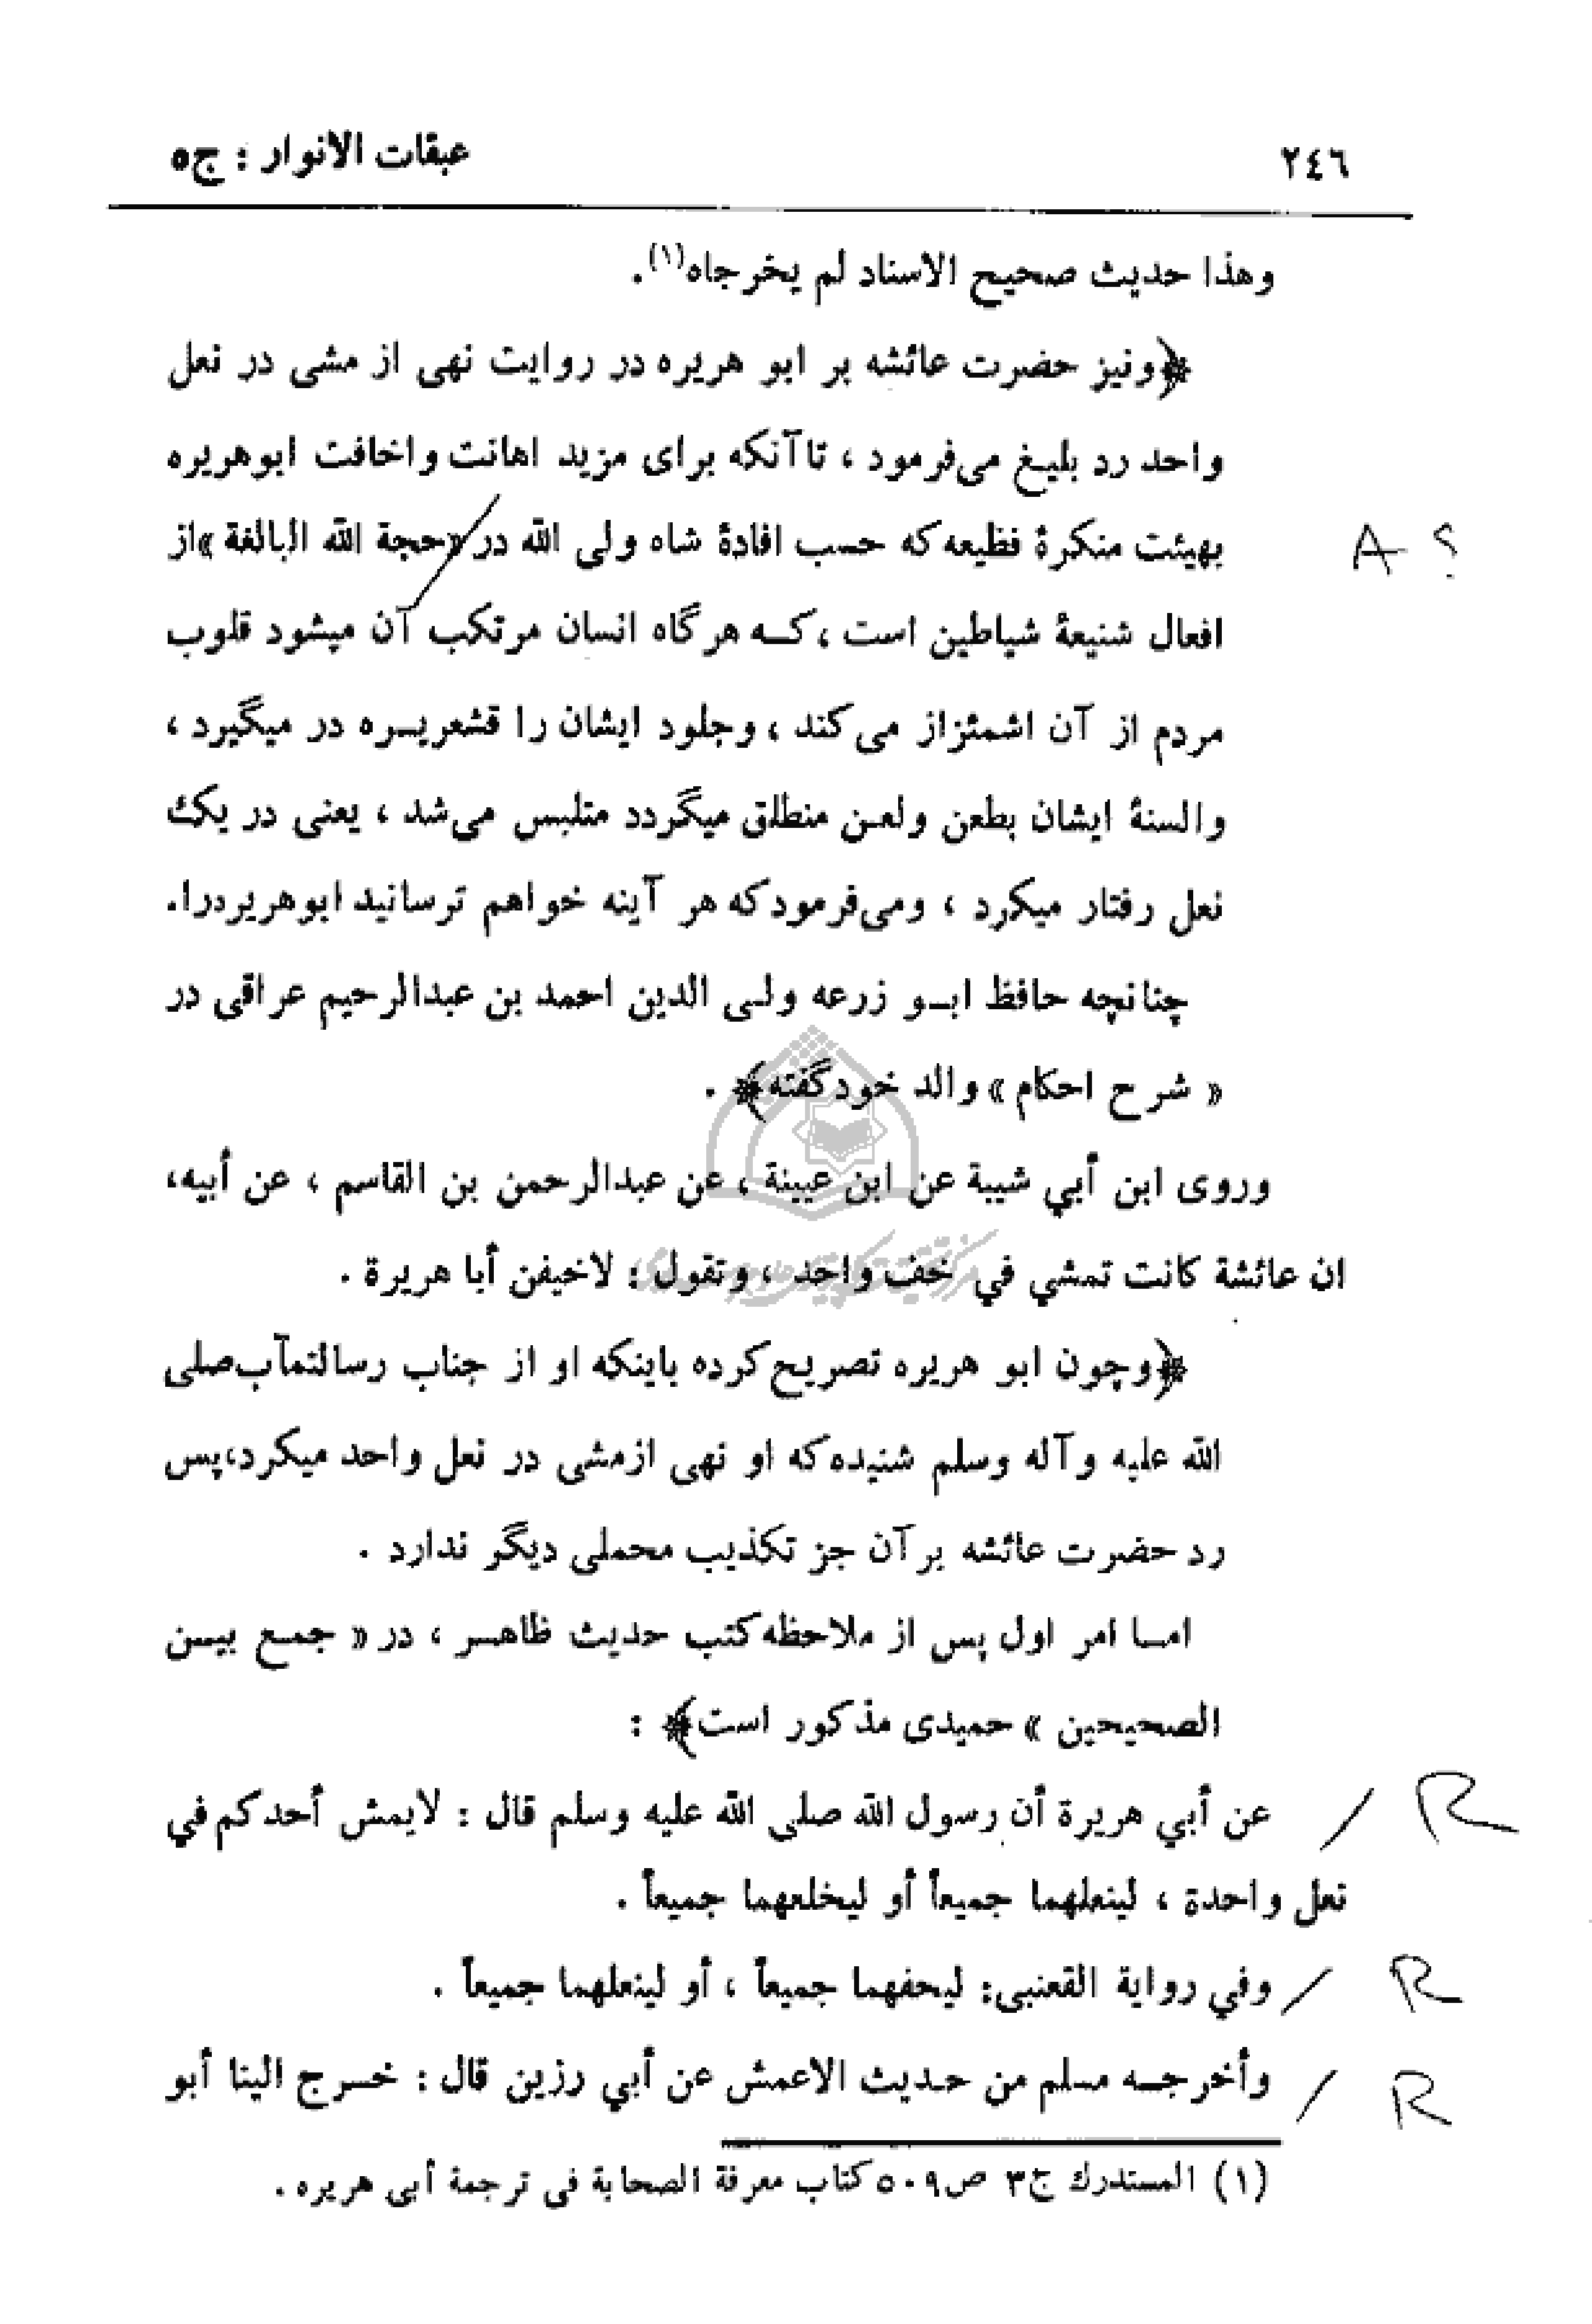 ٢٤٦
عبقات الانوار : ج٥
وهذا حديث صحيح الاسناد لم يخرجاه(١).
﴿ونيز حضرت عائشه بر ابو هريره در روايت نهى از مشى در نعل
واحد رد بليغ مى‌فرمود ، تا آنكه براى مزيد اهانت واخافت ابوهريره
بهيئت منكرۀ فظيعه كه حسب افادۀ شاه ولى الله در «حجة الله البالغة» از
A ؟
افعال شنيعۀ شياطين است ، كه هر گاه انسان مرتكب آن ميشود قلوب
مردم از آن اشمئزاز مى كند ، وجلود ايشان را قشعريره در ميگيرد ،
والسنۀ ايشان بطعن ولعن منطلق ميگردد متلبس مى‌شد ، يعنى در يك
نعل رفتار ميكرد ، ومى‌فرمود كه هر آينه خواهم ترسانيد ابوهريره را.
چنانچه حافظ ابو زرعه ولى الدين احمد بن عبدالرحيم عراقى در
« شرح احكام » والد خود گفته﴾ .
وروى ابن أبي شيبة عن ابن عيينة ، عن عبدالرحمن بن القاسم ، عن أبيه،
ان عائشة كانت تمشي في خف واحد ، وتقول : لاخيفن أبا هريرة .
﴿وچون ابو هريره تصريح كرده باينكه او از جناب رسالتمآب صلى
الله عليه وآله وسلم شنيده كه او نهى ازمشى در نعل واحد ميكرد،پس
رد حضرت عائشه بر آن جز تكذيب محملى ديگر ندارد .
اما امر اول پس از ملاحظه كتب حديث ظاهر ، در « جمع بين
الصحيحين » حميدى مذكور است﴾ :
عن أبي هريرة أن رسول الله صلى الله عليه وسلم قال : لايمش أحدكم في
/ R
نعل واحدة ، لينعلهما جميعاً أو ليخلعهما جميعاً .
وفي رواية القعنبى: ليحفهما جميعاً ، أو لينعلهما جميعاً .
/ R
وأخرجه مسلم من حديث الاعمش عن أبي رزين قال : خرج الينا أبو
/ R
(١) المستدرك ج٣ ص٥٠٩ كتاب معرفة الصحابة فى ترجمة أبى هريره .